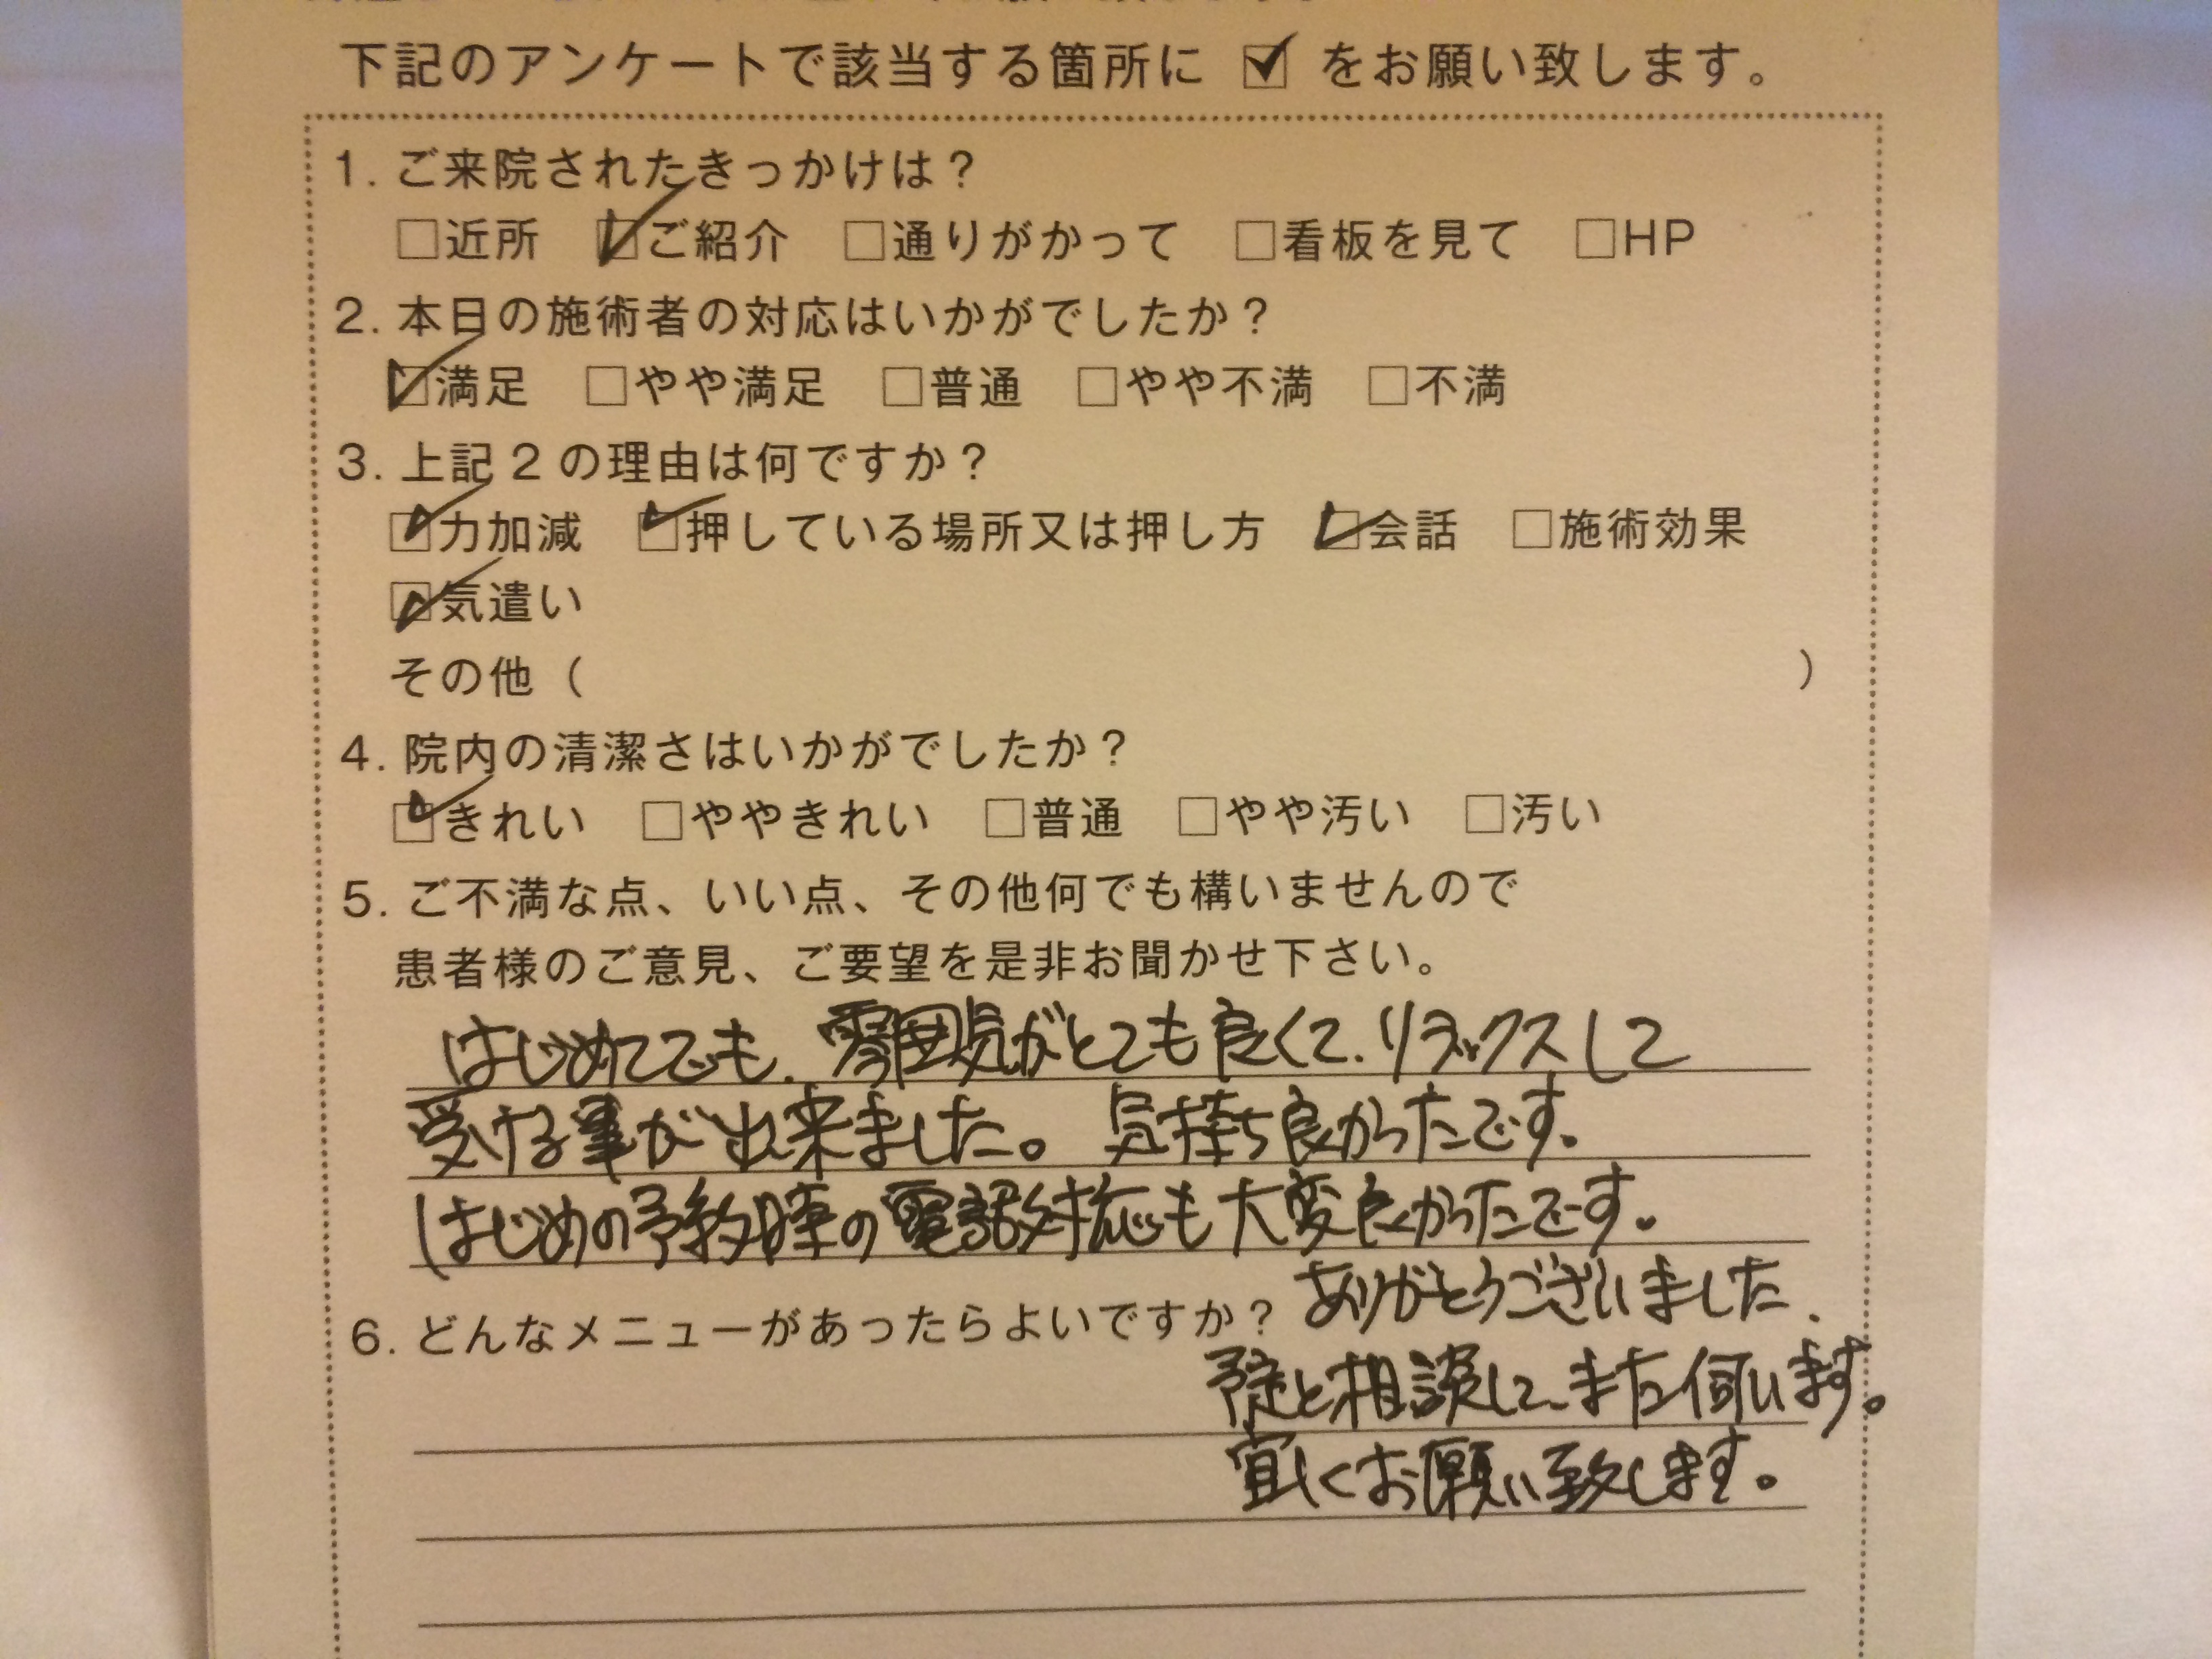 下記のアンケートで該当する箇所に ☑ をお願い致します。
1. ご来院されたきっかけは？
□近所 ☑ご紹介 □通りがかって □看板を見て □HP
2. 本日の施術者の対応はいかがでしたか？
☑満足 □やや満足 □普通 □やや不満 □不満
3. 上記2の理由は何ですか？
☑力加減 ☑押している場所又は押し方 ☑会話 □施術効果
☑気遣い
その他（ ）
4. 院内の清潔さはいかがでしたか？
☑きれい □ややきれい □普通 □やや汚い □汚い
5. ご不満な点、いい点、その他何でも構いませんので
患者様のご意見、ご要望を是非お聞かせ下さい。
はじめてでも、雰囲気がとても良くて、リラックスして
受ける事が出来ました。気持ち良かったです。
はじめの予約時の電話対応も大変良かったです。
ありがとうございました、
6. どんなメニューがあったらよいですか？
予定と相談して、また伺います。
宜しくお願い致します。